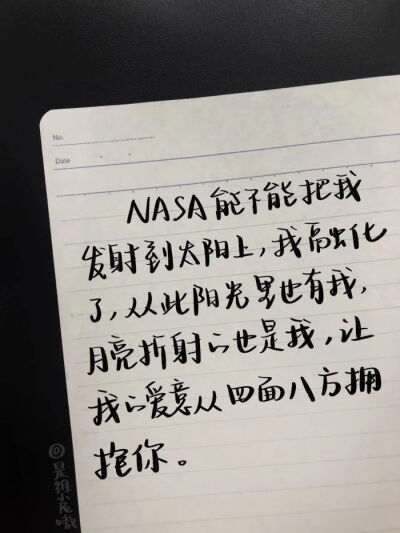 No.
Date
NASA能不能把我
发射到太阳上,我融化
了,从此阳光里也有我,
月亮折射的也是我,让
我的爱意从四面八方拥
抱你。